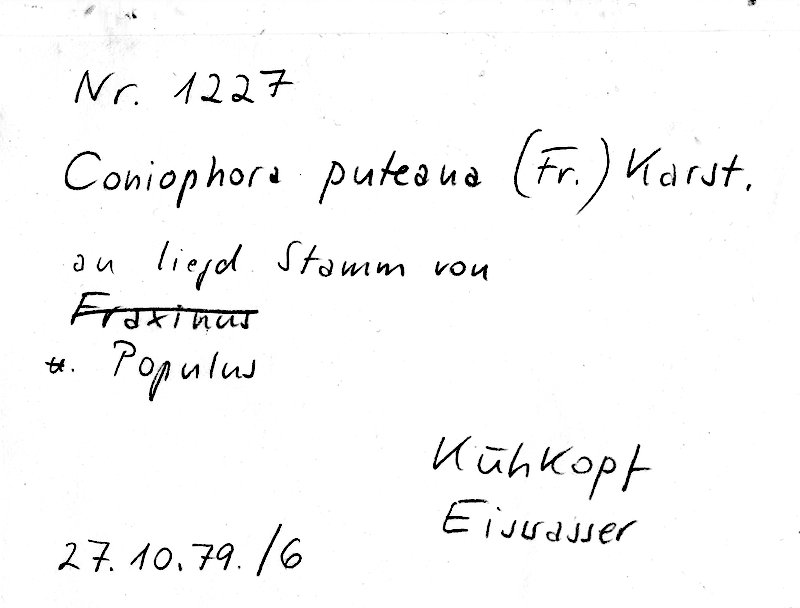 Nr. 1227
Coniophora puteana (Fr.) Karst.
an liegd Stamm von
Fraxinus
u. Populus
Kühkopf
Eiswasser
27.10.79./6